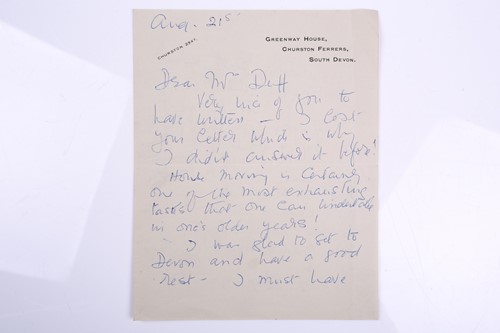 Aug. 21st
CHURSTON 2341.
GREENWAY HOUSE,
CHURSTON FERRERS,
SOUTH DEVON.
Dear Mrs Duff
Very nice of you to
have written — I lost
your letter which is why
I didn't answer it before!
House Moving is certainly
one of the most exhausting
tasks that one can undertake
in one's older years!
I was glad to get to
Devon and have a good
rest — I must have